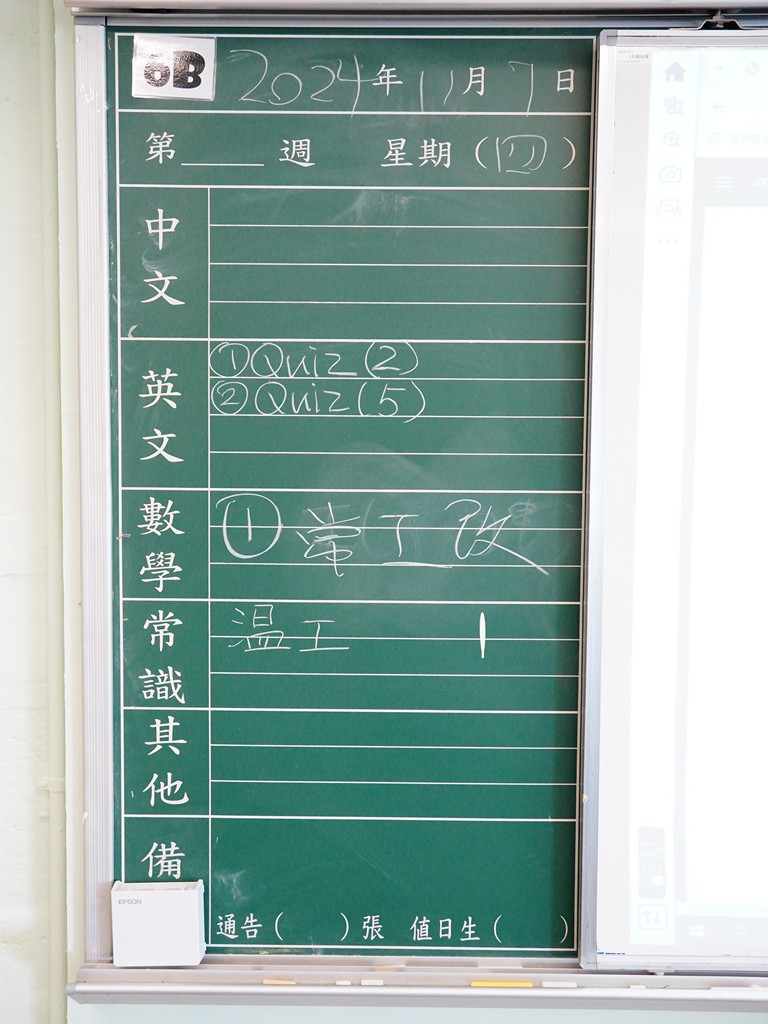 6B
2024年11月7日
第____週 星期(四)
中文
英文
①Quiz(2)
②Quiz(5)
數學
①當工改
常識
温工
其他
備
EPSON
通告( )張 值日生( )